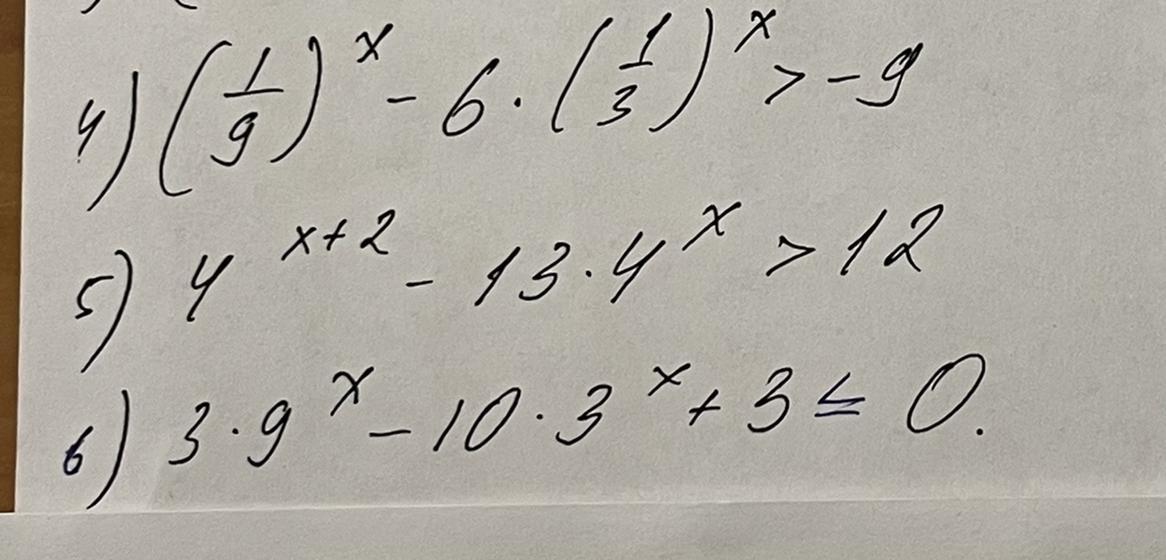 4) (1/9)^x - 6 · (1/3)^x > -9
5) 4^(x+2) - 13 · 4^x > 12
6) 3 · 9^x - 10 · 3^x + 3 ≤ 0.